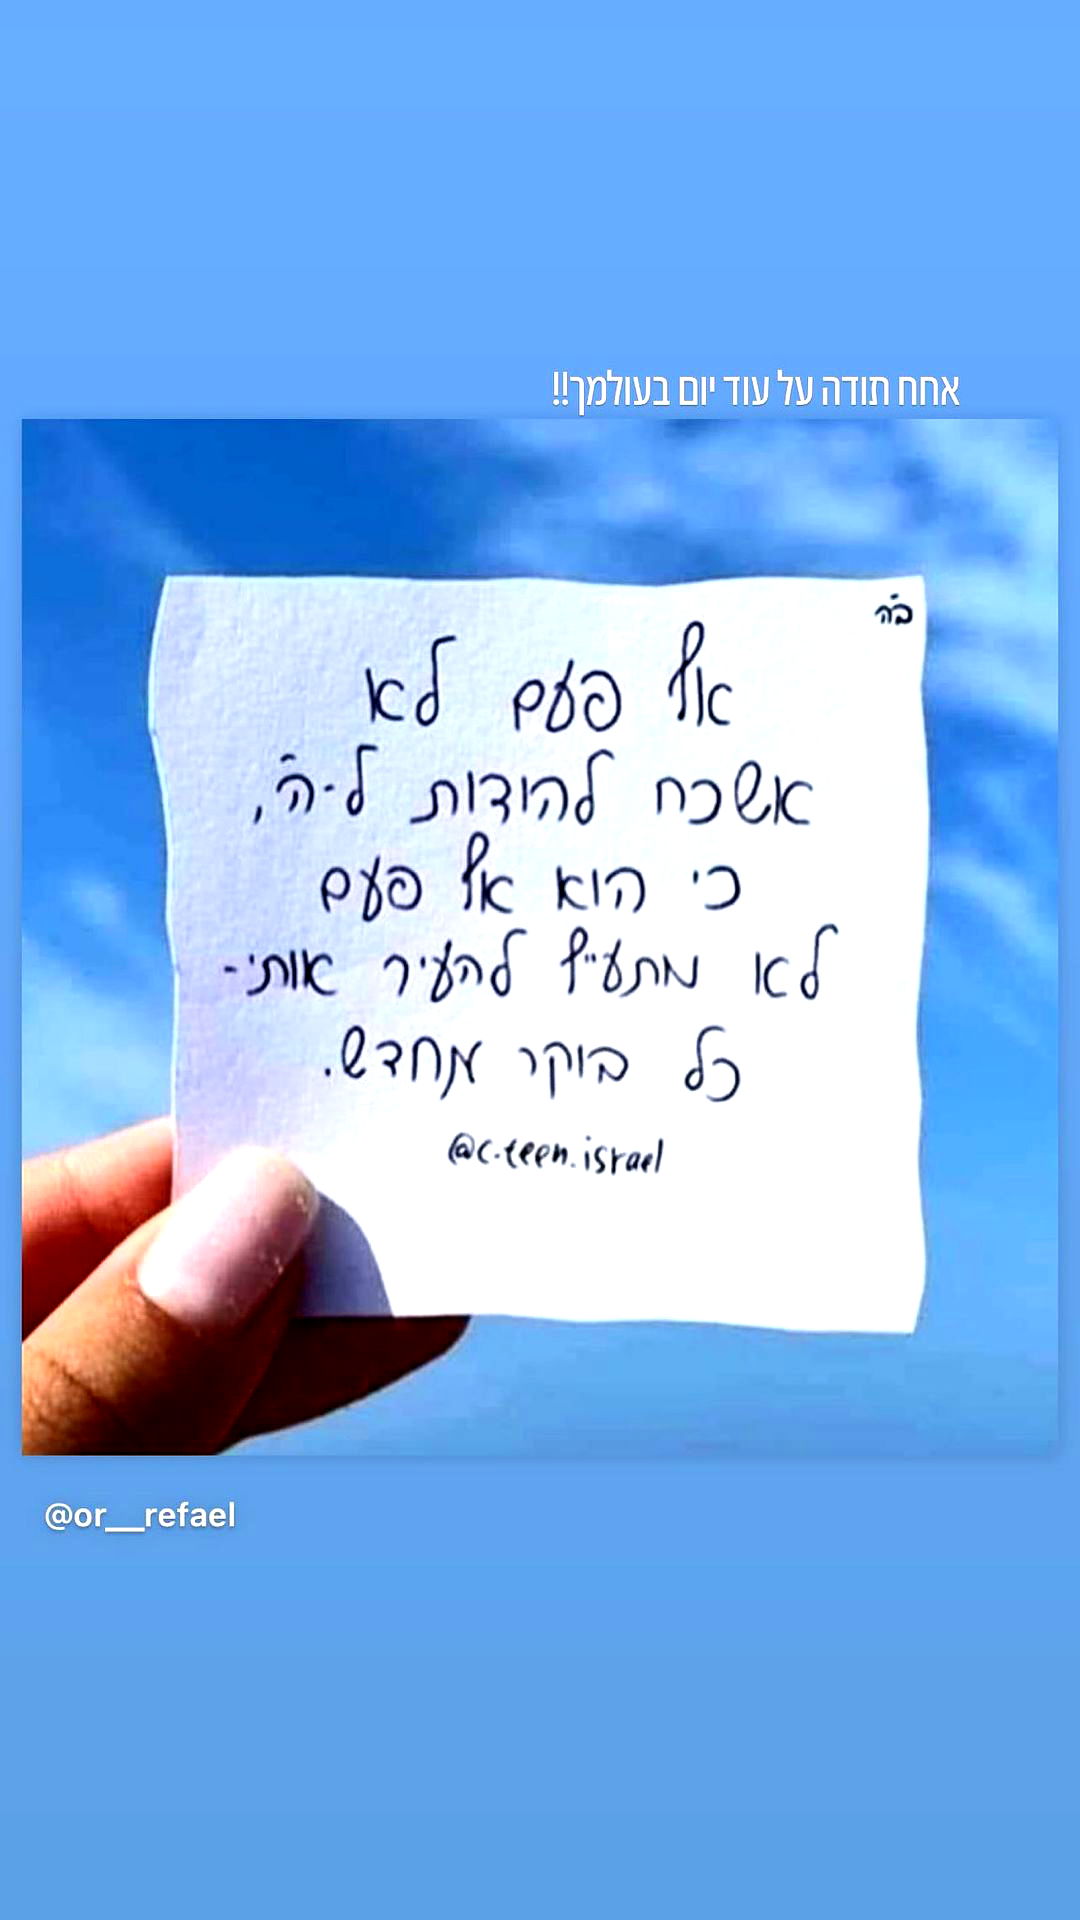 אחח תודה על עוד יום בעולמך!!
בה
אף פעם לא
אשכח להודות ל-ה',
כי הוא אף פעם
לא מתעייף להעיר אותי-
כל בוקר מחדש.
@c.teen.israel
@or__refael